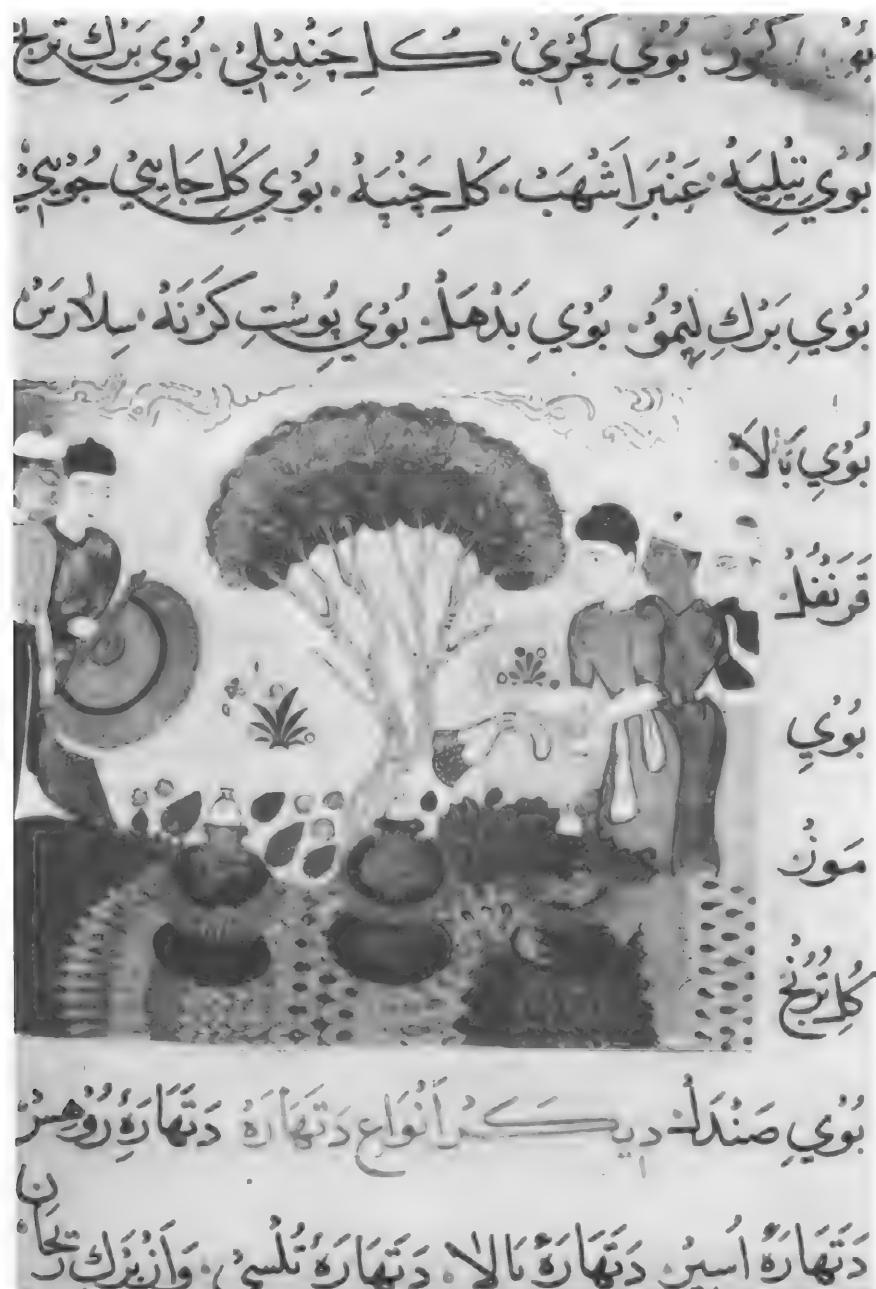 كپُور · بُويِ كَچَرِيْ · كُلِ چَنْبِيْلِيْ · بُويِ بَرْكِ تُرُنْجْ
بُويِ تِيْلِيَهْ · عَنْبَرِ اَشْهَبْ · كُلِ چَنْپَهْ · بُويِ كُلِ جَايِيْ جُوْيِيْ
بُويِ بَرْكِ لِيْمُوْ · بُويِ بَدْهَلْ · بُويِ پُوسْتِ كَرْنَهْ · سِلَارَسْ
بُويِ بَالَا ·
قَرَنْفُلْ
بُويِ
مَوزْ
كُلِ تُرُنْجْ
بُويِ صَنْدَلْ دِيكَرْ اَنْوَاعِ دَتْهَارَهْ دَتْهَارَهُ رُوْهِسْ
دَتْهَارَهُ اُسِيْر · دَتْهَارَهُ بَالَا · دَتْهَارَهُ تُلْسِيْ · وَاَزْ بَرْكِ رَيْحَانْ